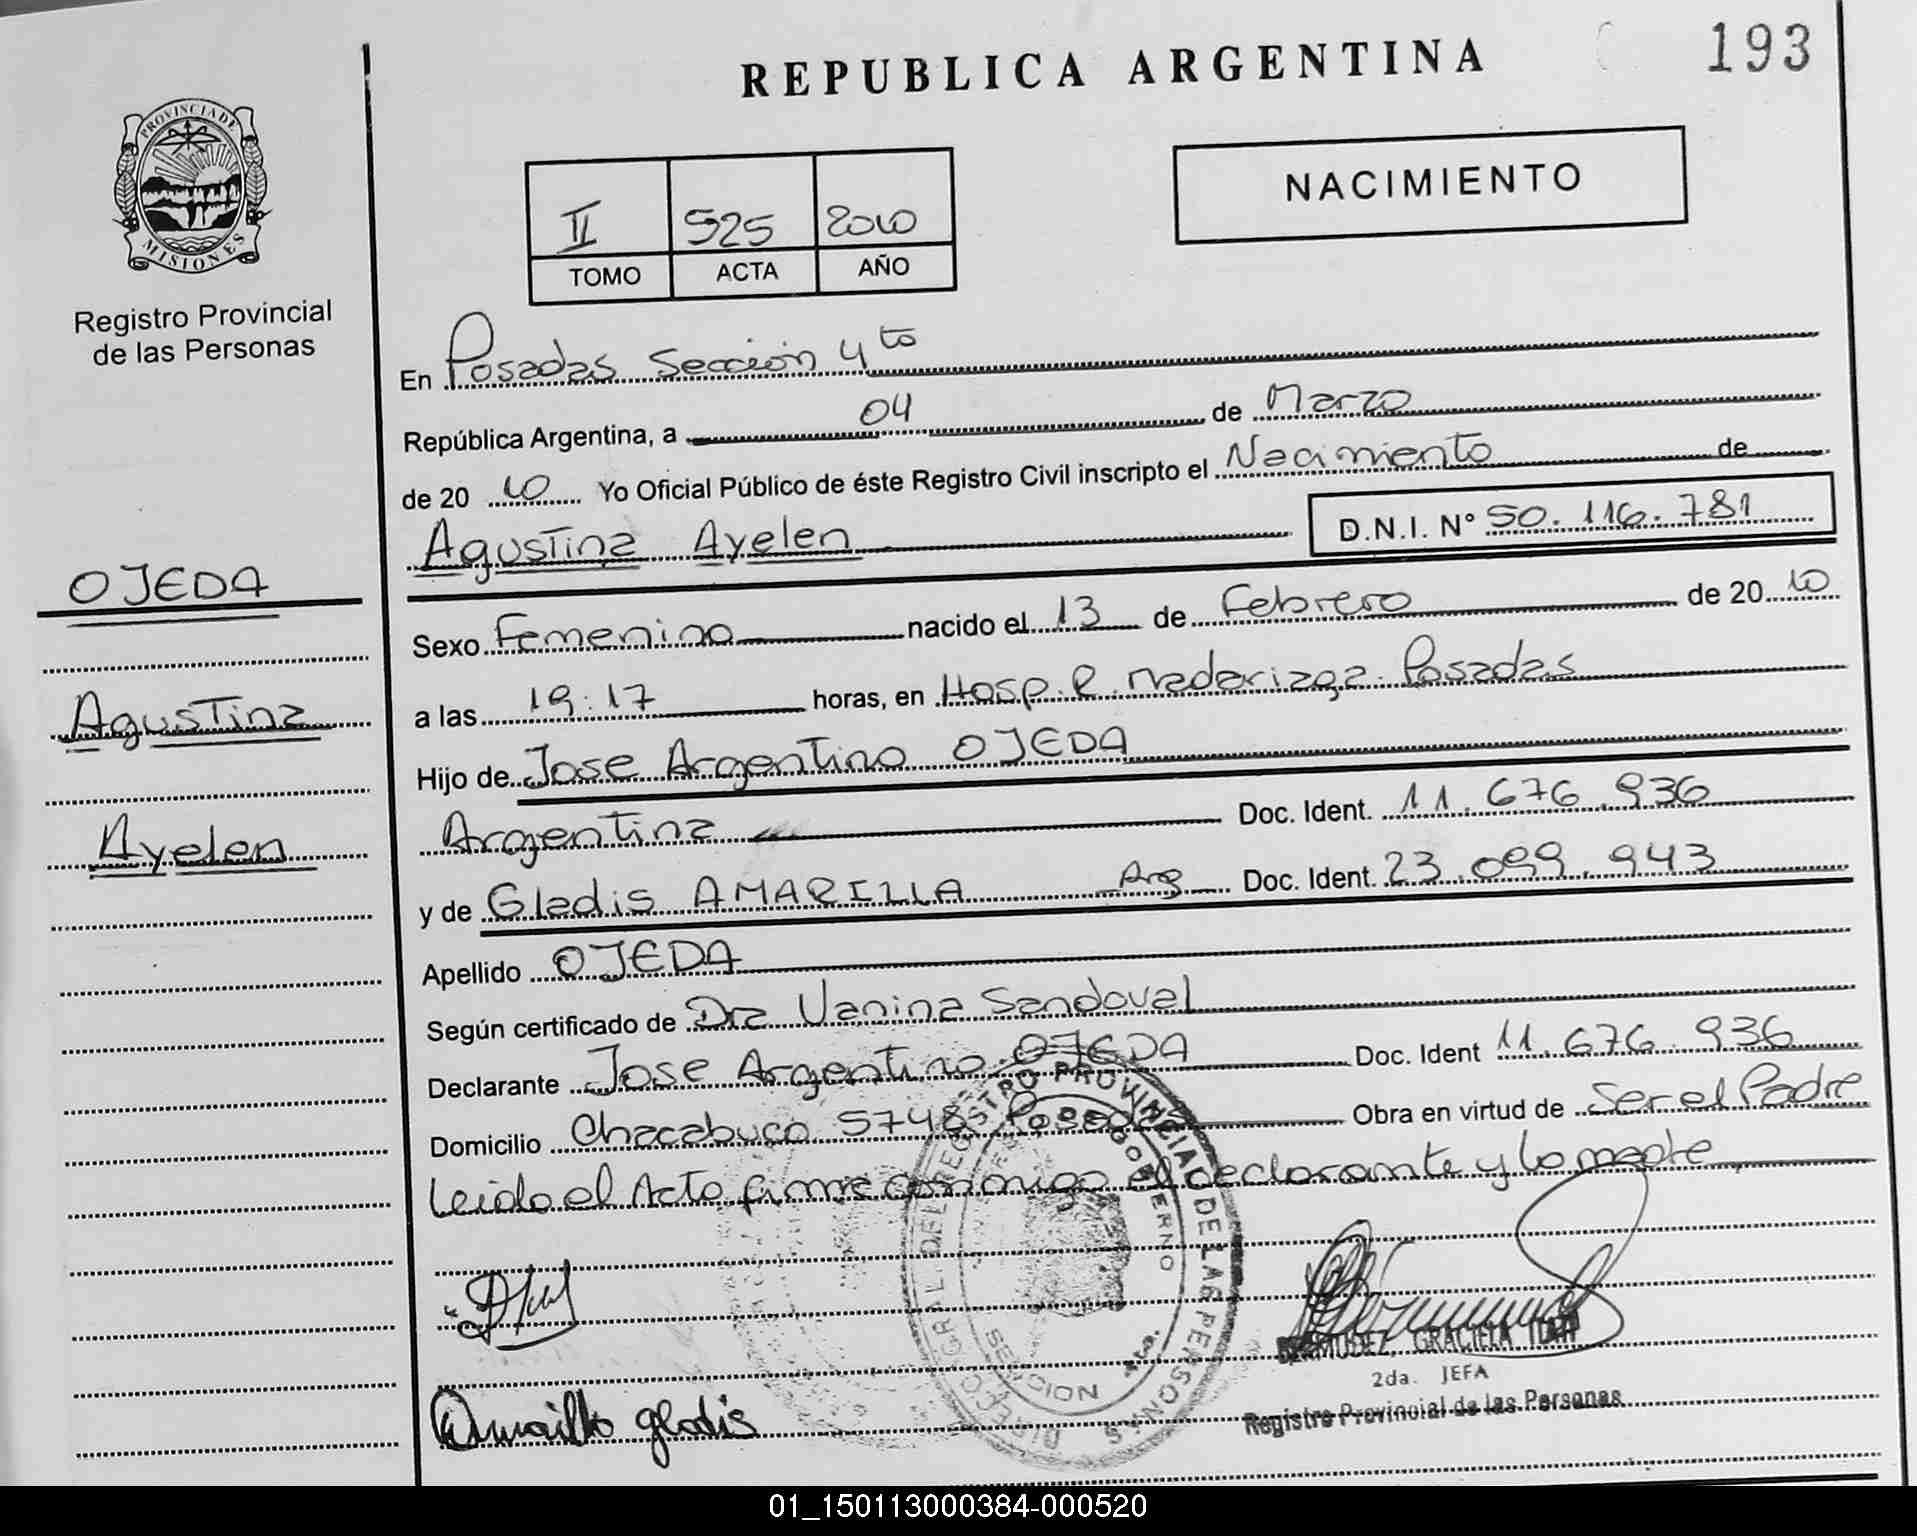 REPUBLICA ARGENTINA
193
PROVINCIA DE
MISIONES
Registro Provincial
de las Personas
NACIMIENTO
II 525 2010
TOMO ACTA AÑO
En Posadas Sección 4to
República Argentina, a 04 de Marzo
de 20 10 Yo Oficial Público de éste Registro Civil inscripto el Nacimiento de
Agustina Ayelen D.N.I. N° 50.116.781
OJEDA
Agustina
Ayelen
Sexo Femenino nacido el 13 de Febrero de 20 10
a las 19:17 horas, en Hosp. R. Madariaga. Posadas
Hijo de Jose Argentino OJEDA
Argentina Doc. Ident. 11.676.936
y de Gladis AMARILLA Arg Doc. Ident. 23.099.943
Apellido OJEDA
Según certificado de Dra Vanina Sandoval
Declarante Jose Argentino OJEDA Doc. Ident 11.676.936
Domicilio Chacabuco 5748 Posadas Obra en virtud de ser el Padre
Leido el Acta, firma conmigo el declarante y la madre
DIRECCION GRAL. DEL REGISTRO PROVINCIAL DE LAS PERSONAS
SECCION 4ta.
BERMUDEZ, GRACIELA
2da. JEFA
Registro Provincial de las Personas
Amarilla gladis
01_150113000384-000520